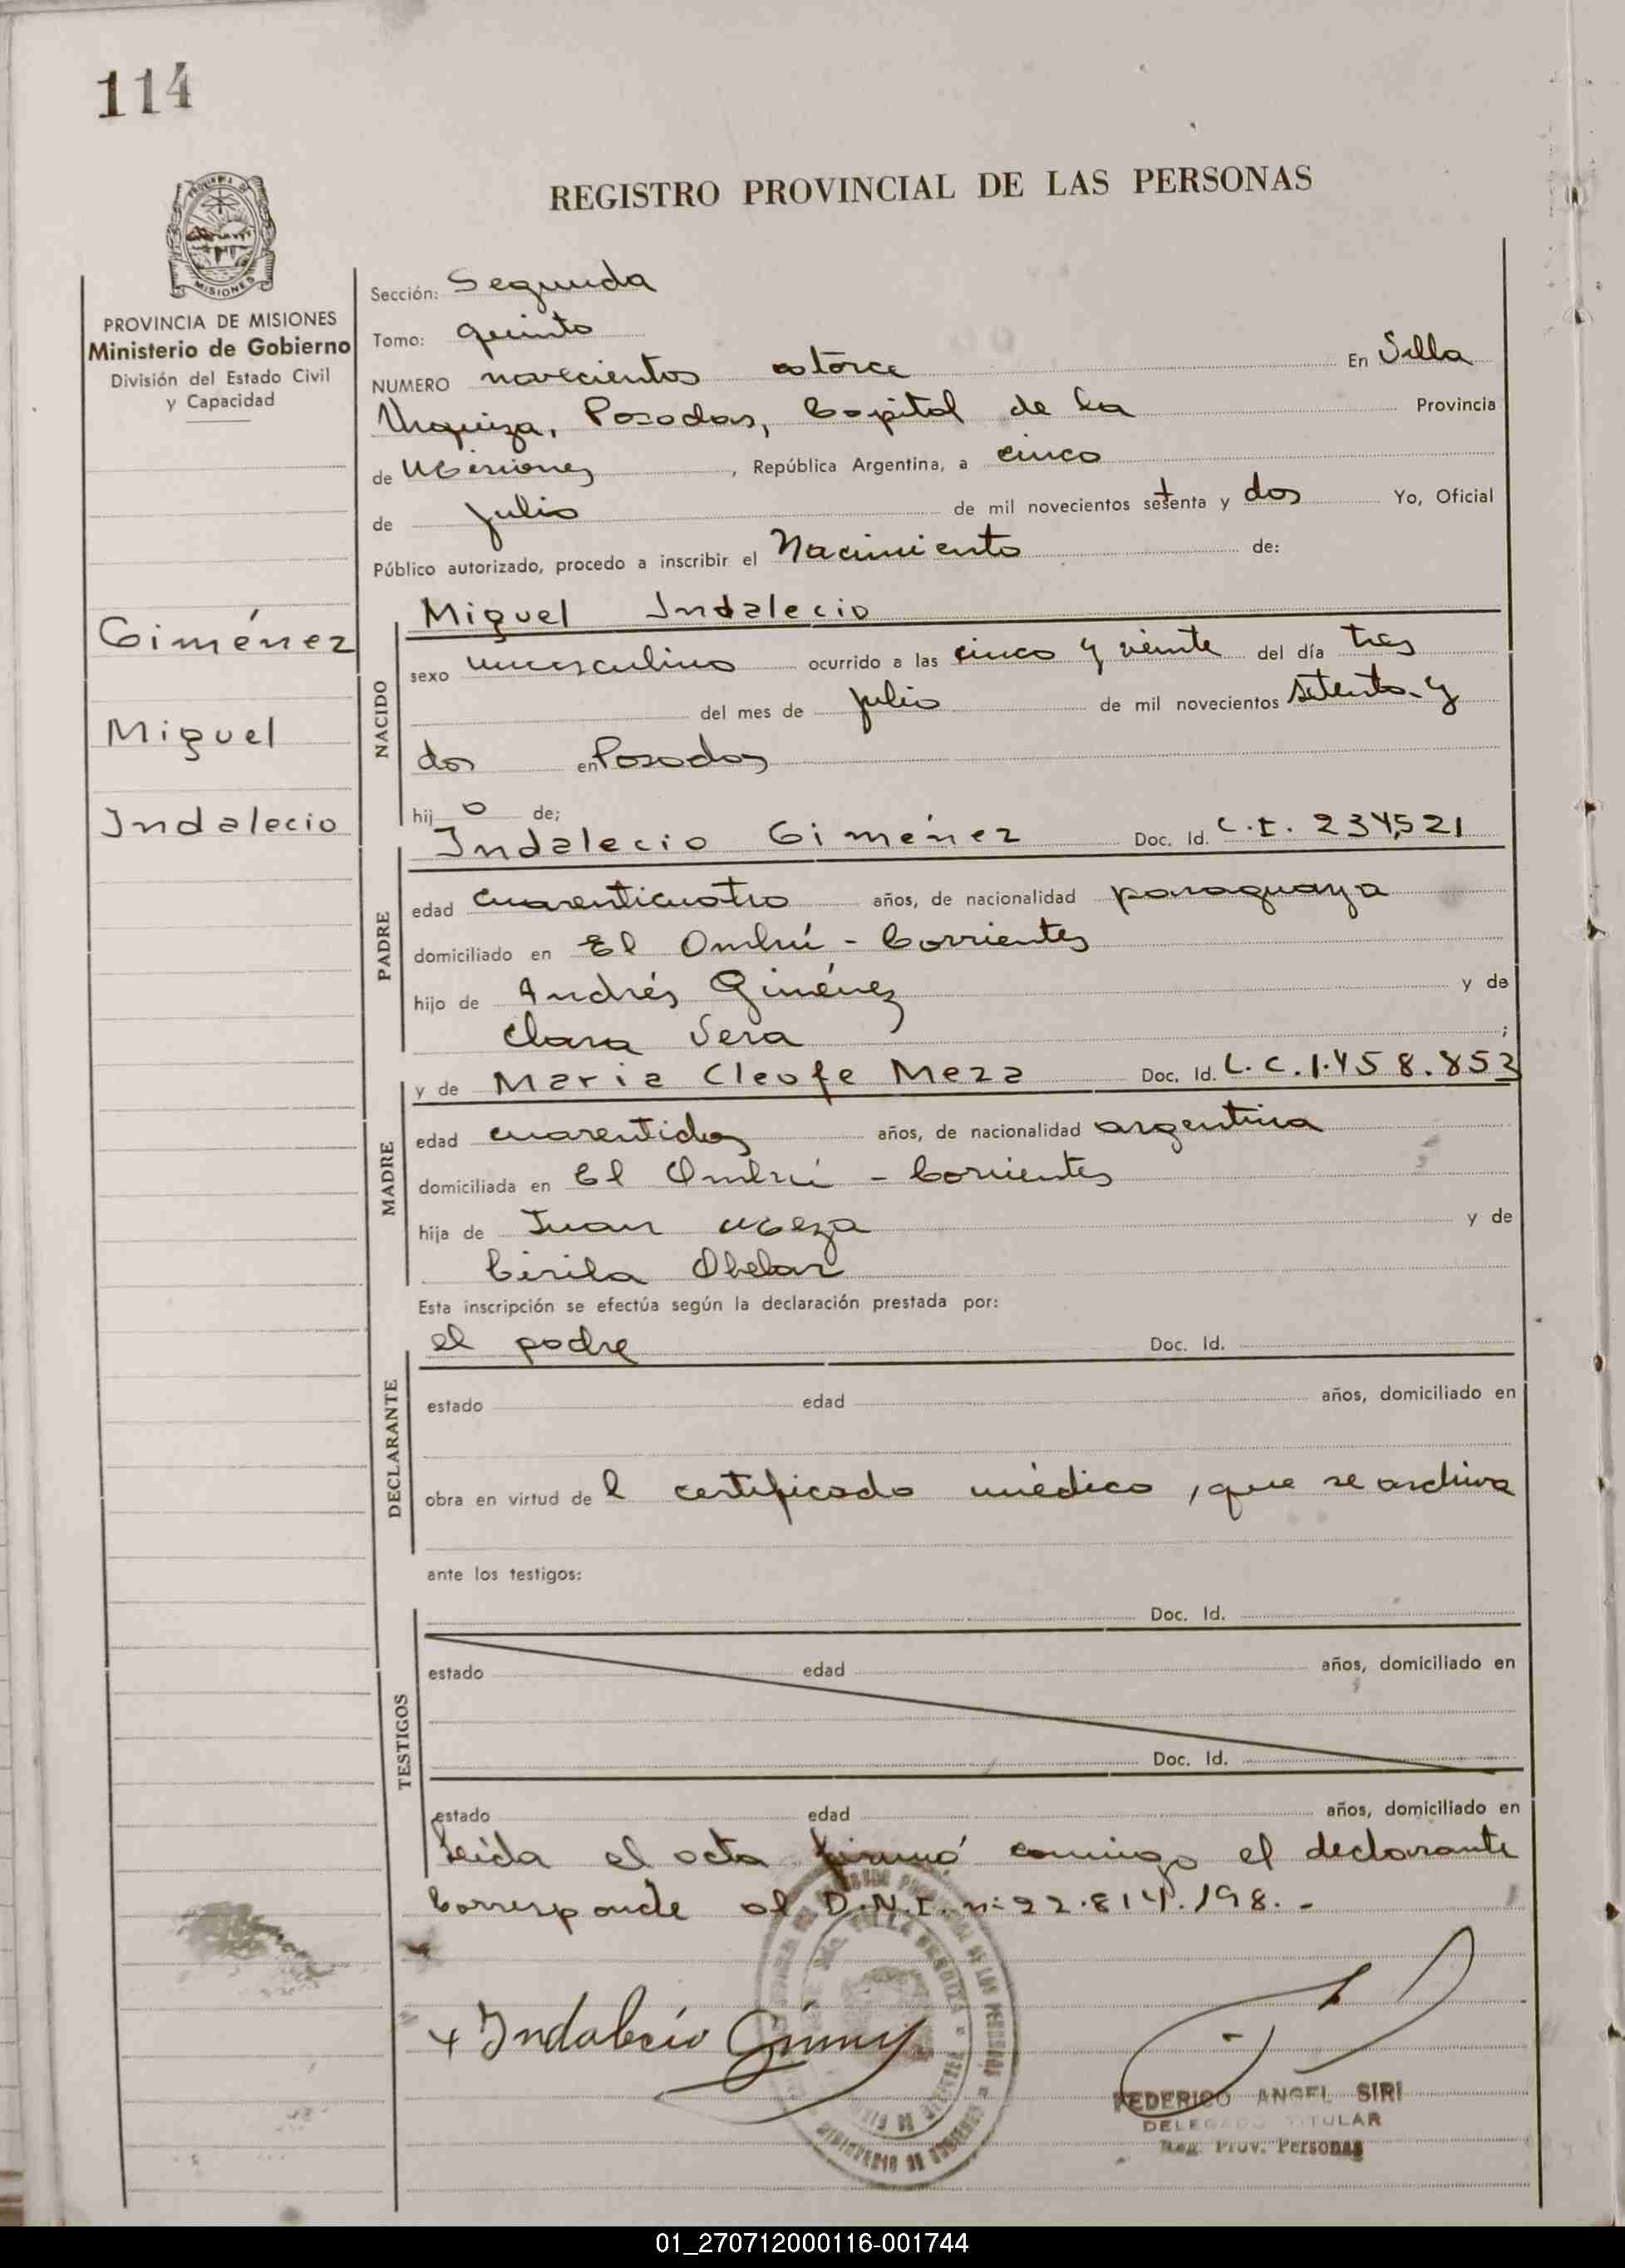 114
REGISTRO PROVINCIAL DE LAS PERSONAS
MISIONES
PROVINCIA DE MISIONES
Ministerio de Gobierno
División del Estado Civil
y Capacidad
Giménez
Miguel
Indalecio
Sección: Segunda
Tomo: quinto
NUMERO novecientos catorce En Villa
Urquiza, Posadas, Capital de la Provincia
de Misiones, República Argentina, a cinco
de julio de mil novecientos setenta y dos Yo, Oficial
Público autorizado, procedo a inscribir el Nacimiento de:
NACIDO
Miguel Indalecio
sexo masculino ocurrido a las cinco y veinte del día tres
del mes de julio de mil novecientos setenta y
dos en Posadas
hij o de;
PADRE
Indalecio Giménez Doc. Id. C.I. 234,521
edad cuarenticuatro años, de nacionalidad paraguaya
domiciliado en El Ombú - Corrientes
hijo de Andrés Giménez y de
Clara Vera ;
MADRE
y de Maria Cleofe Meza Doc. Id. L.C.1.458.853
edad cuarentidos años, de nacionalidad argentina
domiciliada en El Ombú - Corrientes
hija de Juan Meza y de
Cirila Obelar
Esta inscripción se efectúa según la declaración prestada por:
DECLARANTE
el padre Doc. Id.
estado edad años, domiciliado en
obra en virtud de l certificado médico, que se archiva
ante los testigos:
TESTIGOS
Doc. Id.
estado edad años, domiciliado en
Doc. Id.
estado edad años, domiciliado en
Leida el acta firmó conmigo el declarante
Corresponde al D.N.I. n: 22.814.198.-
Indalecio Gimenez
FEDERICO ANGEL SIRI
DELEGADO TITULAR
Reg. Prov. Personas
01_270712000116-001744